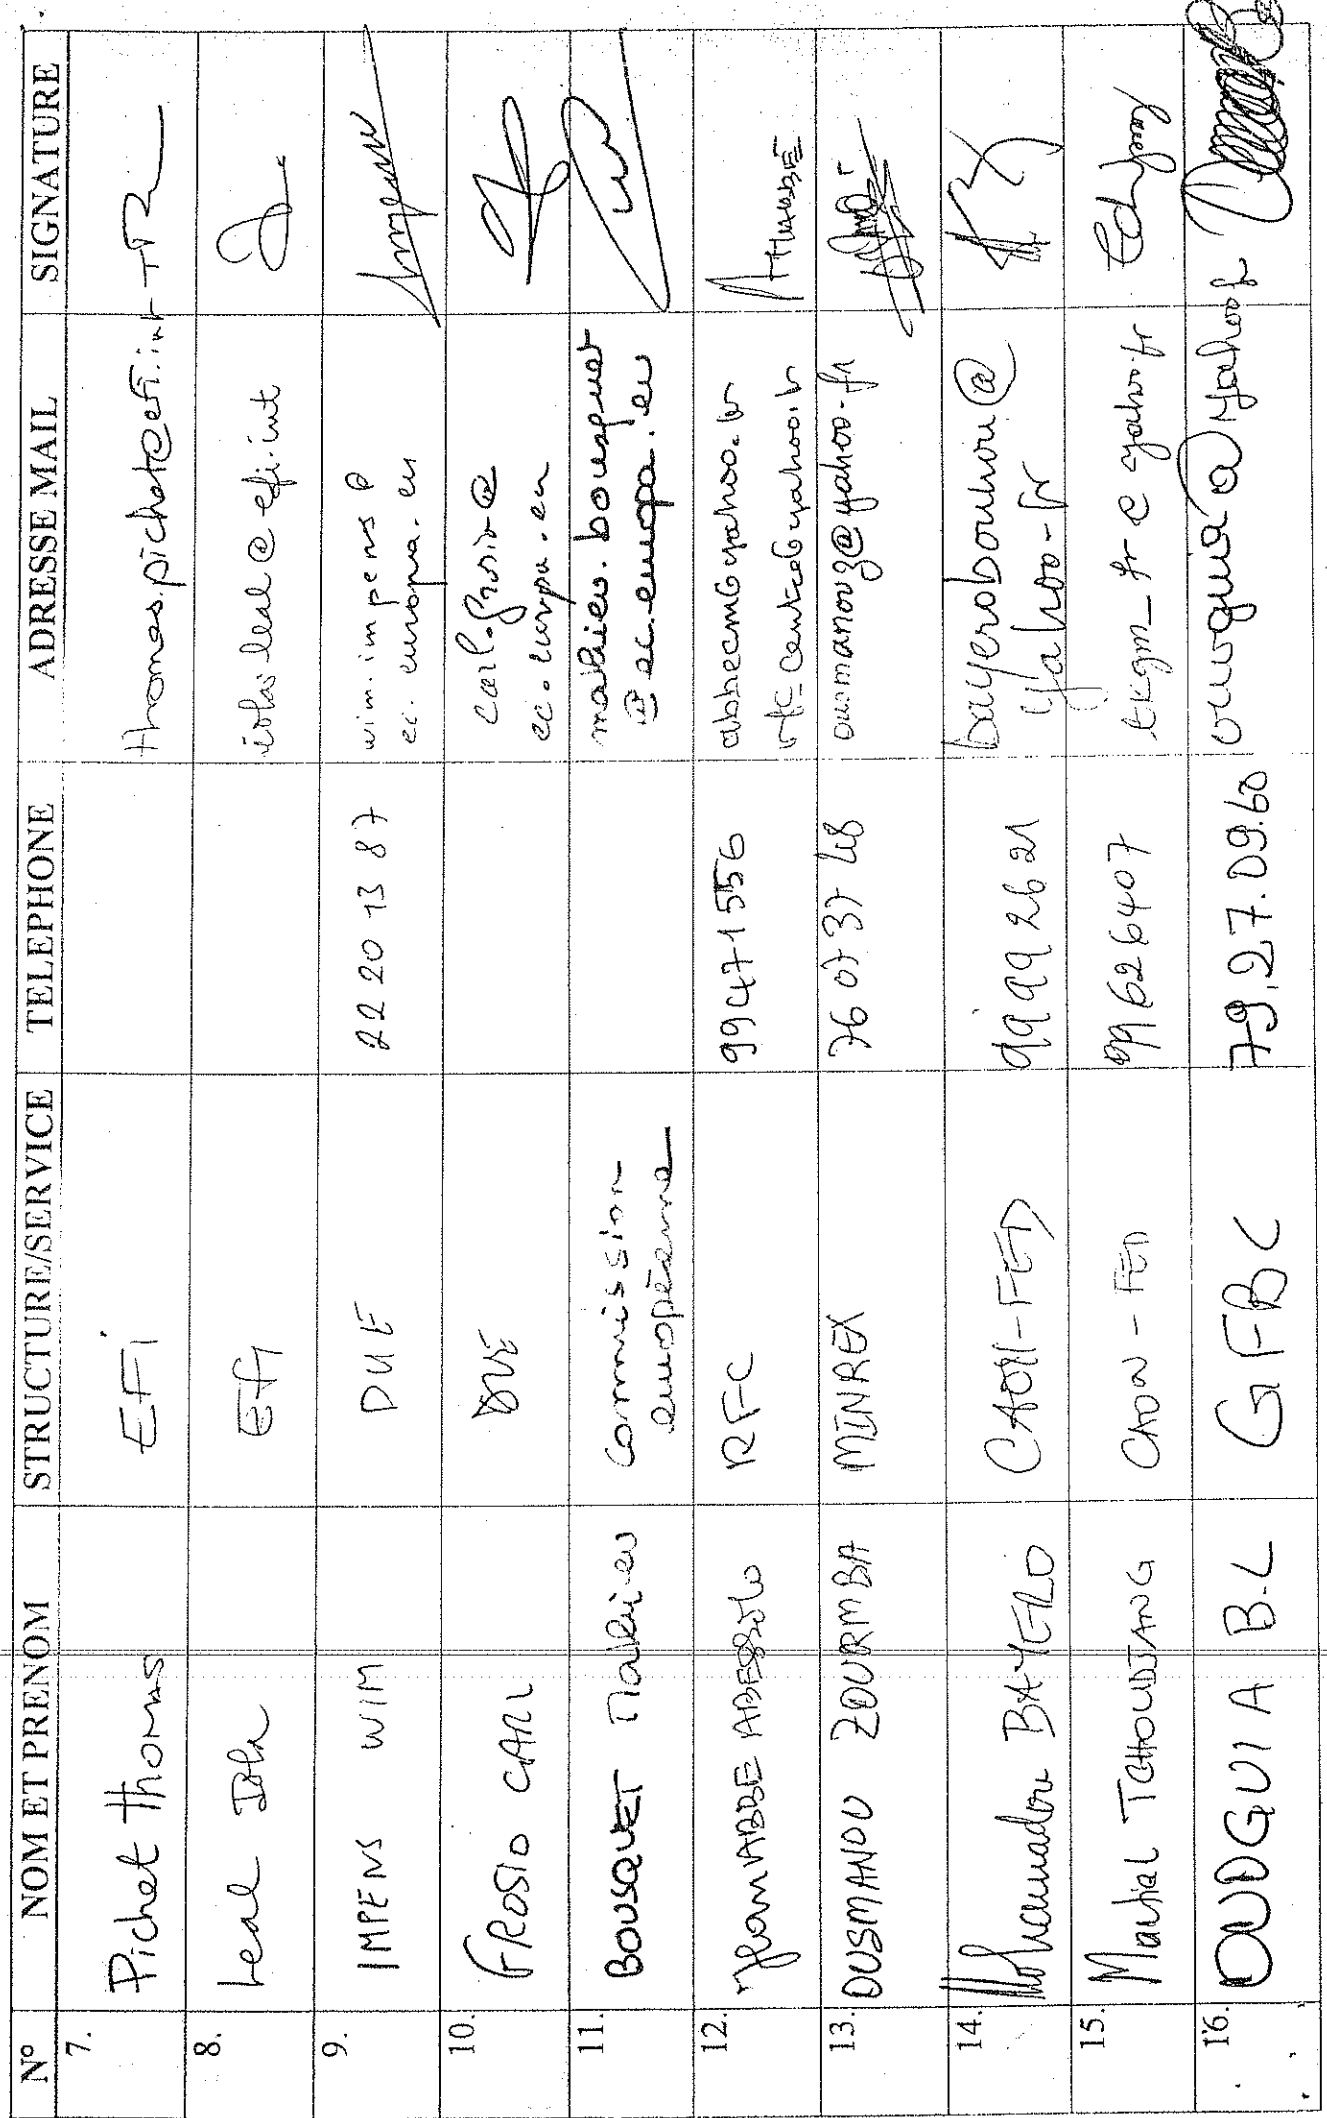 N° NOM ET PRENOM STRUCTURE/SERVICE TELEPHONE ADRESSE MAIL SIGNATURE
7. Pichet Thomas EFI thomas.pichet@efi.int TP
8. Leal Iola EFI iola.leal@efi.int
9. IMPENS WIM DUE 22 20 13 87 wim.impens@
ec.europa.eu
10. FROSIO CARL DUE carl.frosio@
ec.europa.eu
11. BOUSQUET Mathieu Commission
européenne mathieu.bousquet
@ec.europa.eu
12. ABBE ABESSOLO RFC 99471556
13. OUSMANOU ZOURMBA MINREX 76 07 37 48 ousmanouz@yahoo.fr
14. Mohamadou BAYERO CAON-FED 99 99 26 21 bayerobouhou@
yahoo.fr
15. Martial TCHOUDJANG CAON-FED 99626407 tkgm_fr@yahoo.fr
16. OUDGUIA B.L GFBC 79.27.09.60